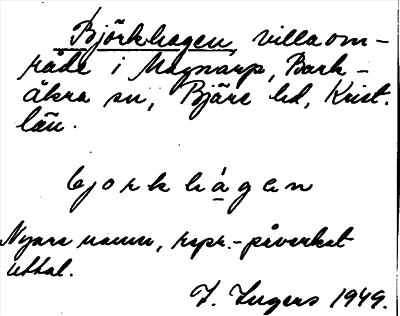 Björkhagen, villaom-
råde i Magnarp, Bark-
åkra sn, Bjäre hd, Krist.
län.
bjorkhágen
Nyare namn, rspr.-påverkat
uttal.
I. Ingers 1949.